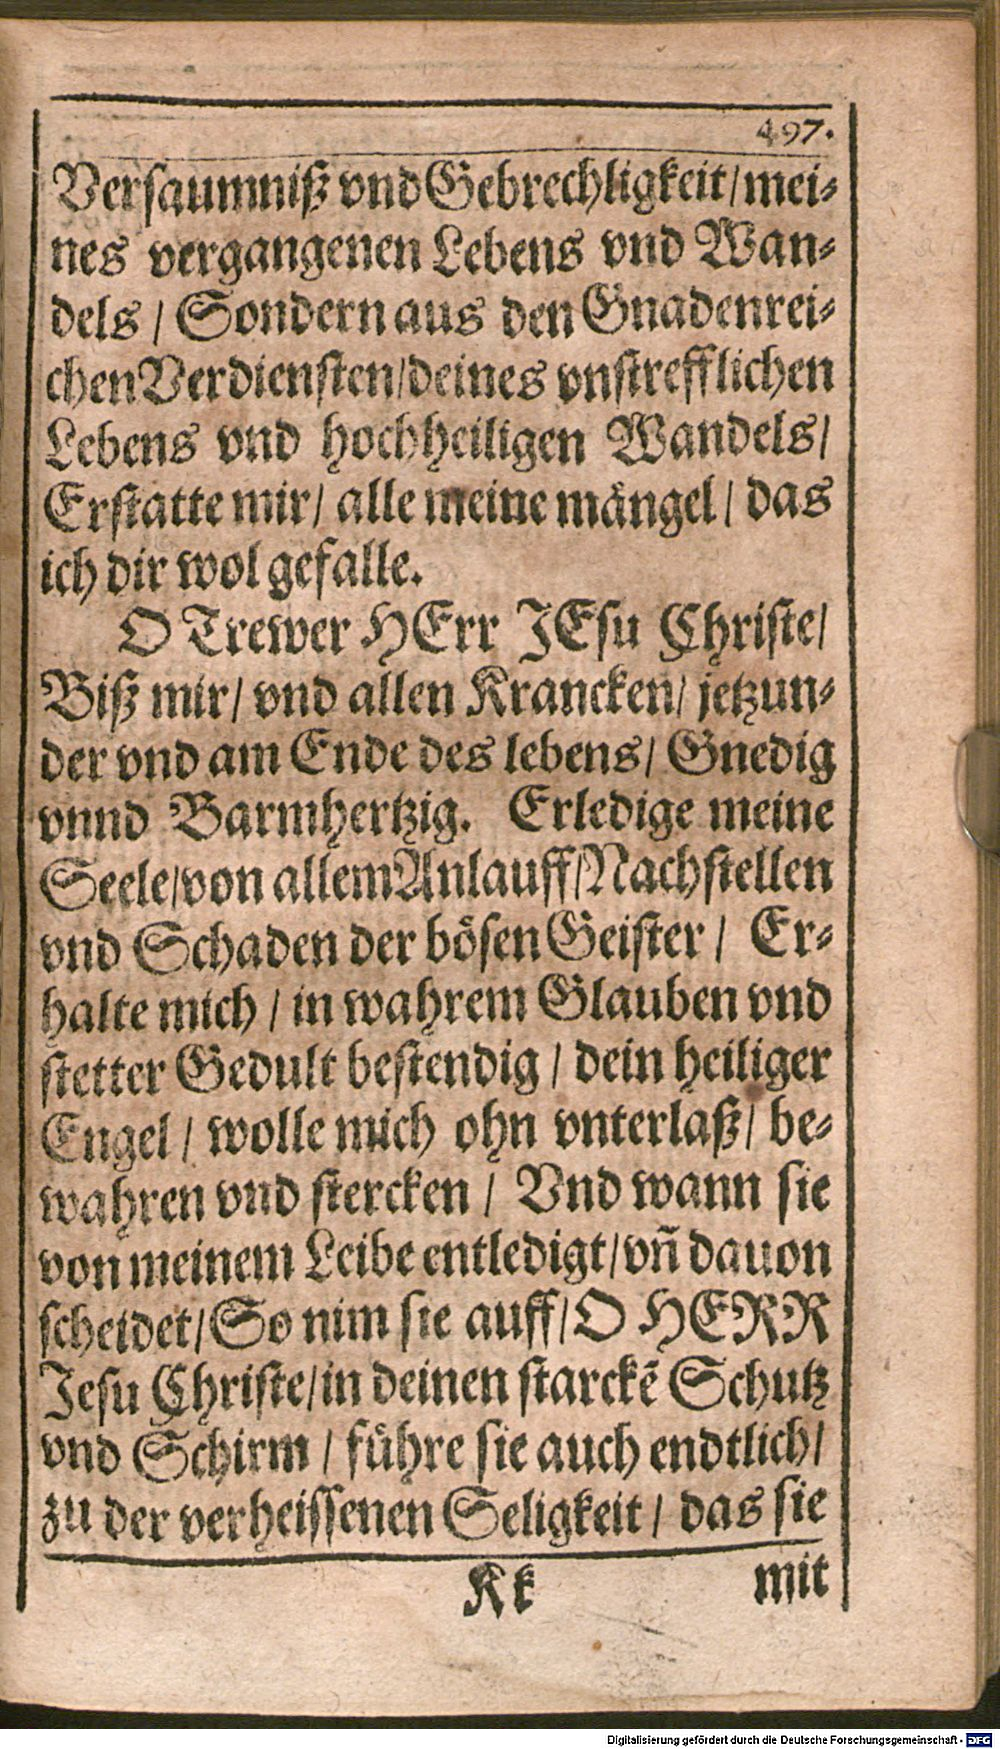 497.
Versaumniß vnd Gebrechligkeit/ mei-
nes vergangenen Lebens vnd Wan-
dels / Sondern aus den Gnadenrei-
chen Verdiensten/ deines vnstrefflichen
Lebens vnd hochheiligen Wandels/
Erstatte mir/ alle meine mängel/ das
ich dir wol gefalle.
O Trewer HErr JEsu Christe/
Biß mir/ vnd allen Krancken/ jetzun-
der vnd am Ende des lebens/ Gnedig
vnnd Barmhertzig. Erledige meine
Seele/ von allem Anlauff/ Nachstellen
vnd Schaden der bösen Geister / Er-
halte mich / in wahrem Glauben vnd
stetter Gedult bestendig / dein heiliger
Engel / wolle mich ohn vnterlaß/ be-
wahren vnd stercken / Vnd wann sie
von meinem Leibe entledigt/ vñ dauon
scheidet/ So nim sie auff/ O HERR
Jesu Christe/ in deinen starckẽ Schutz
vnd Schirm / führe sie auch endtlich/
zu der verheissenen Seligkeit / das sie
Kk mit
Digitalisierung gefördert durch die Deutsche Forschungsgemeinschaft - DFG